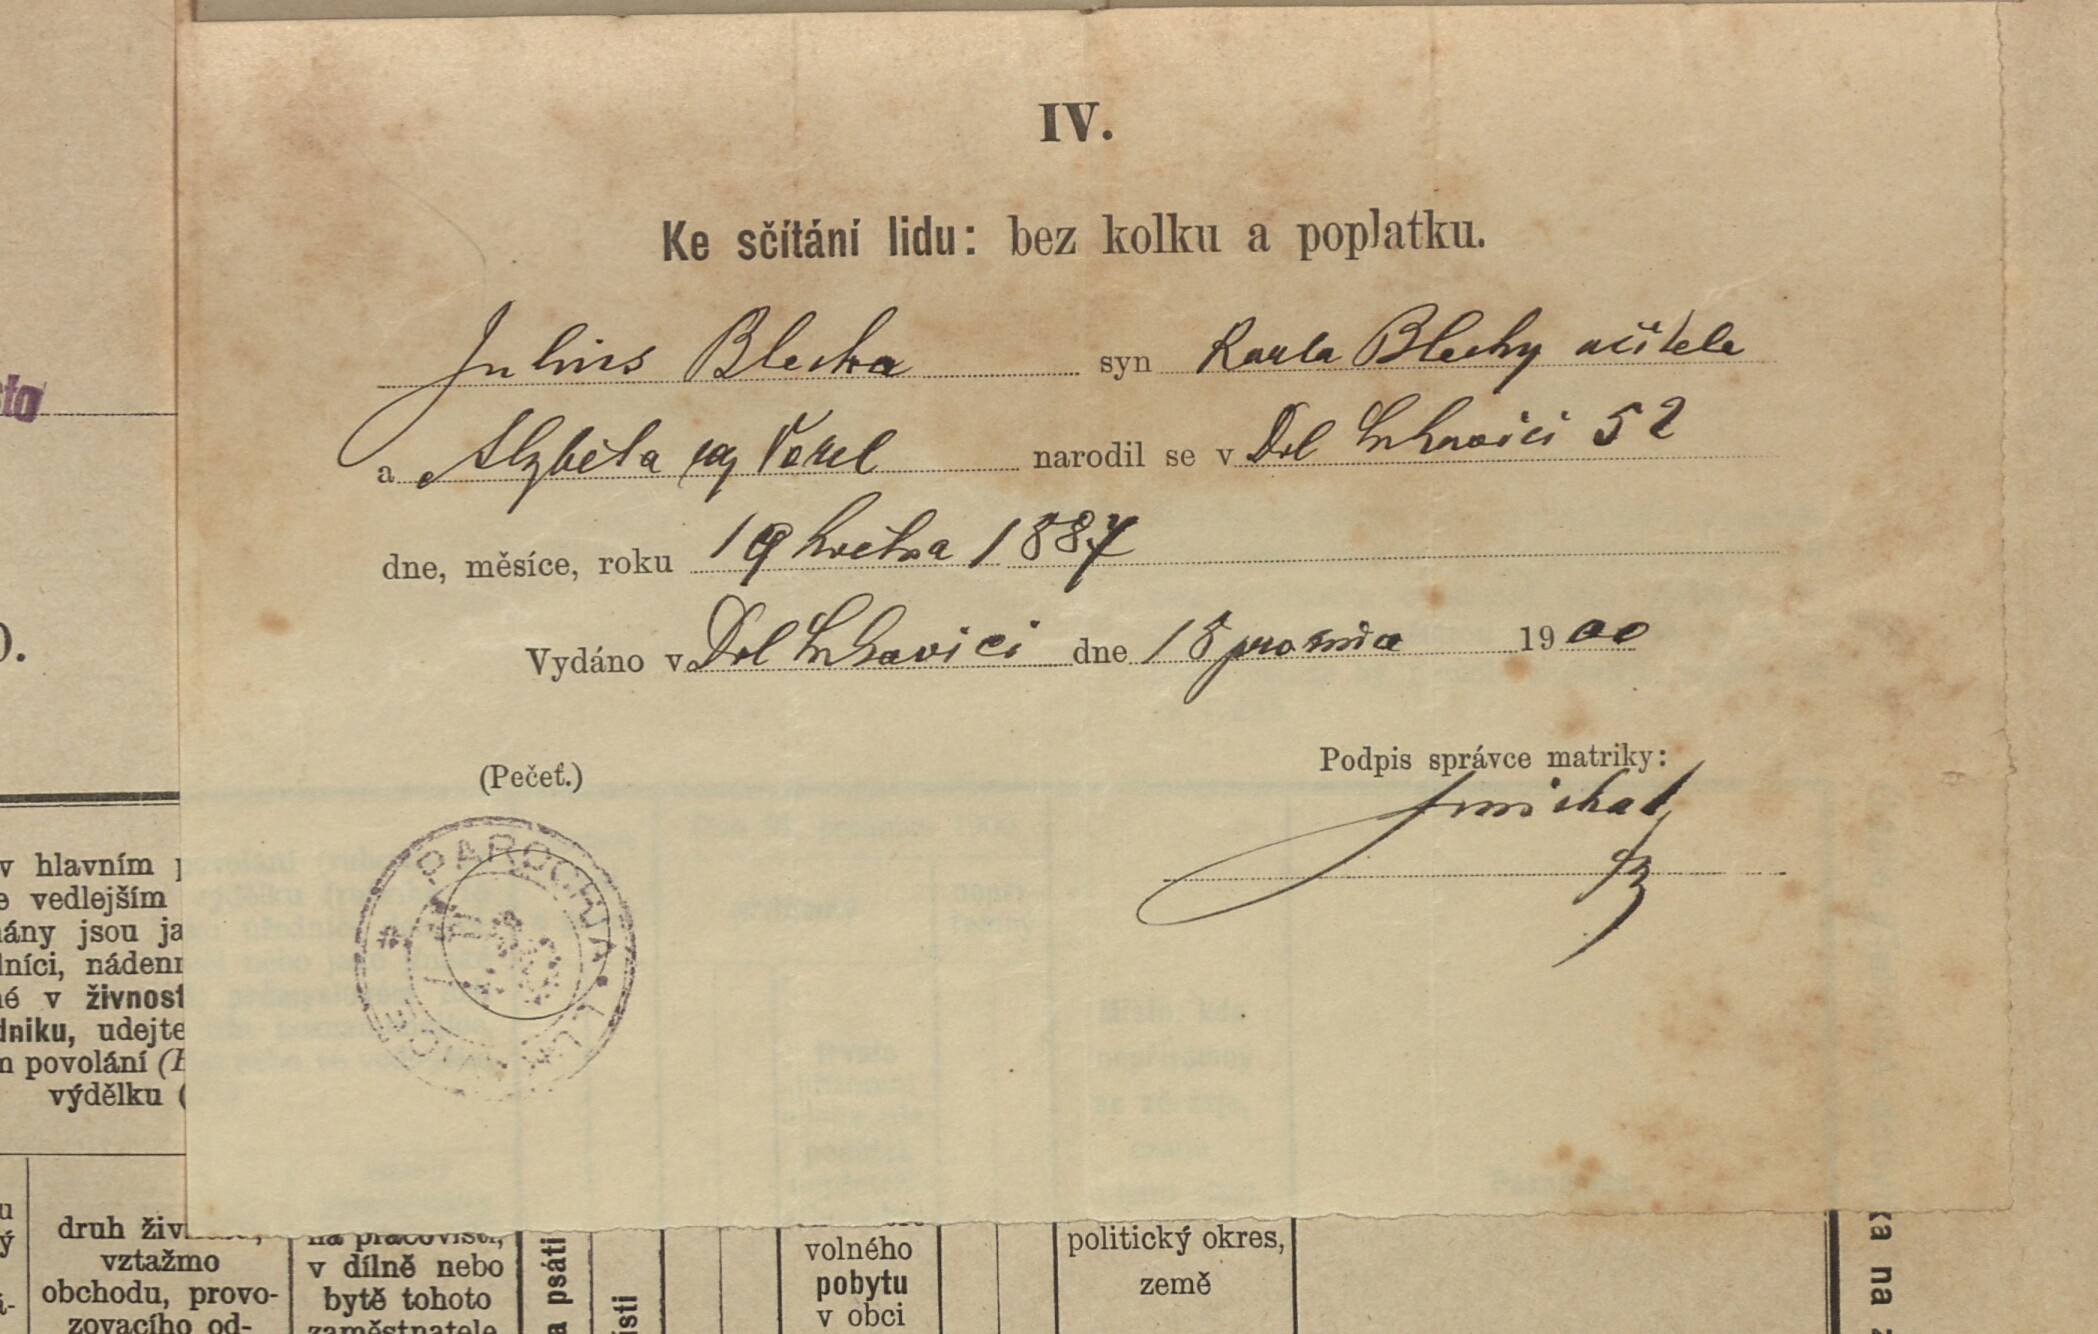 IV.
Ke sčítání lidu: bez kolku a poplatku.
Julius Blecha syn Karla Blechy učitele
a Alzběta roz Vorel narodil se v Dol Lukavici 52
dne, měsíce, roku 19 května 1887
Vydáno v Dol Lukavici dne 18 prosince 1900
Podpis správce matriky:
(Pečeť.)
PAROCHIA
v hlavním
vedlejším
jsou
nádeni
v živnost
udejte
povolání
výdělku (
druh
vztažmo
obchodu, provo-
zovacího od-
na pracovišti,
v dílně nebo
bytě tohoto
zaměstnatele
psáti
volného
pobytu
v obci
politický okres,
země
na